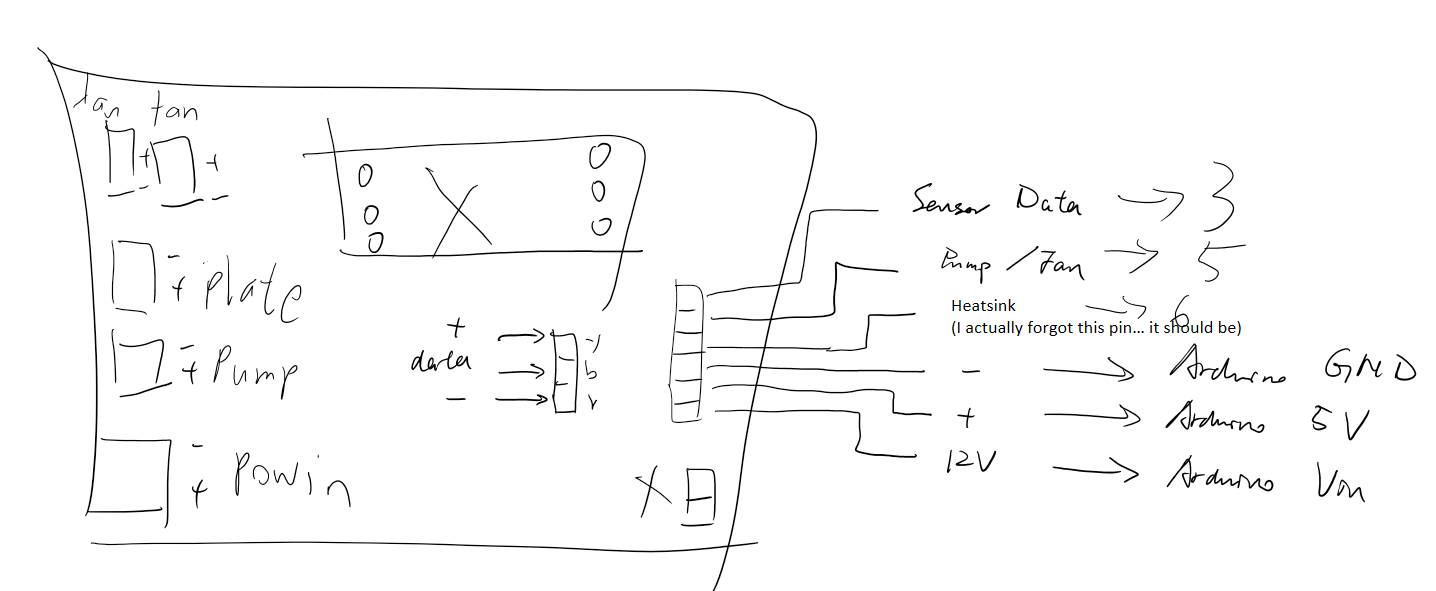 fan fan
+ +
- -
- + plate
- + Pump
- + Powin
X
+
data
-
y
b
r
X
Sensor Data → 3
Pump / Fan → 5
Heatsink → 6
(I actually forgot this pin... it should be)
- → Arduino GND
+ → Arduino 5V
12V → Arduino Vin